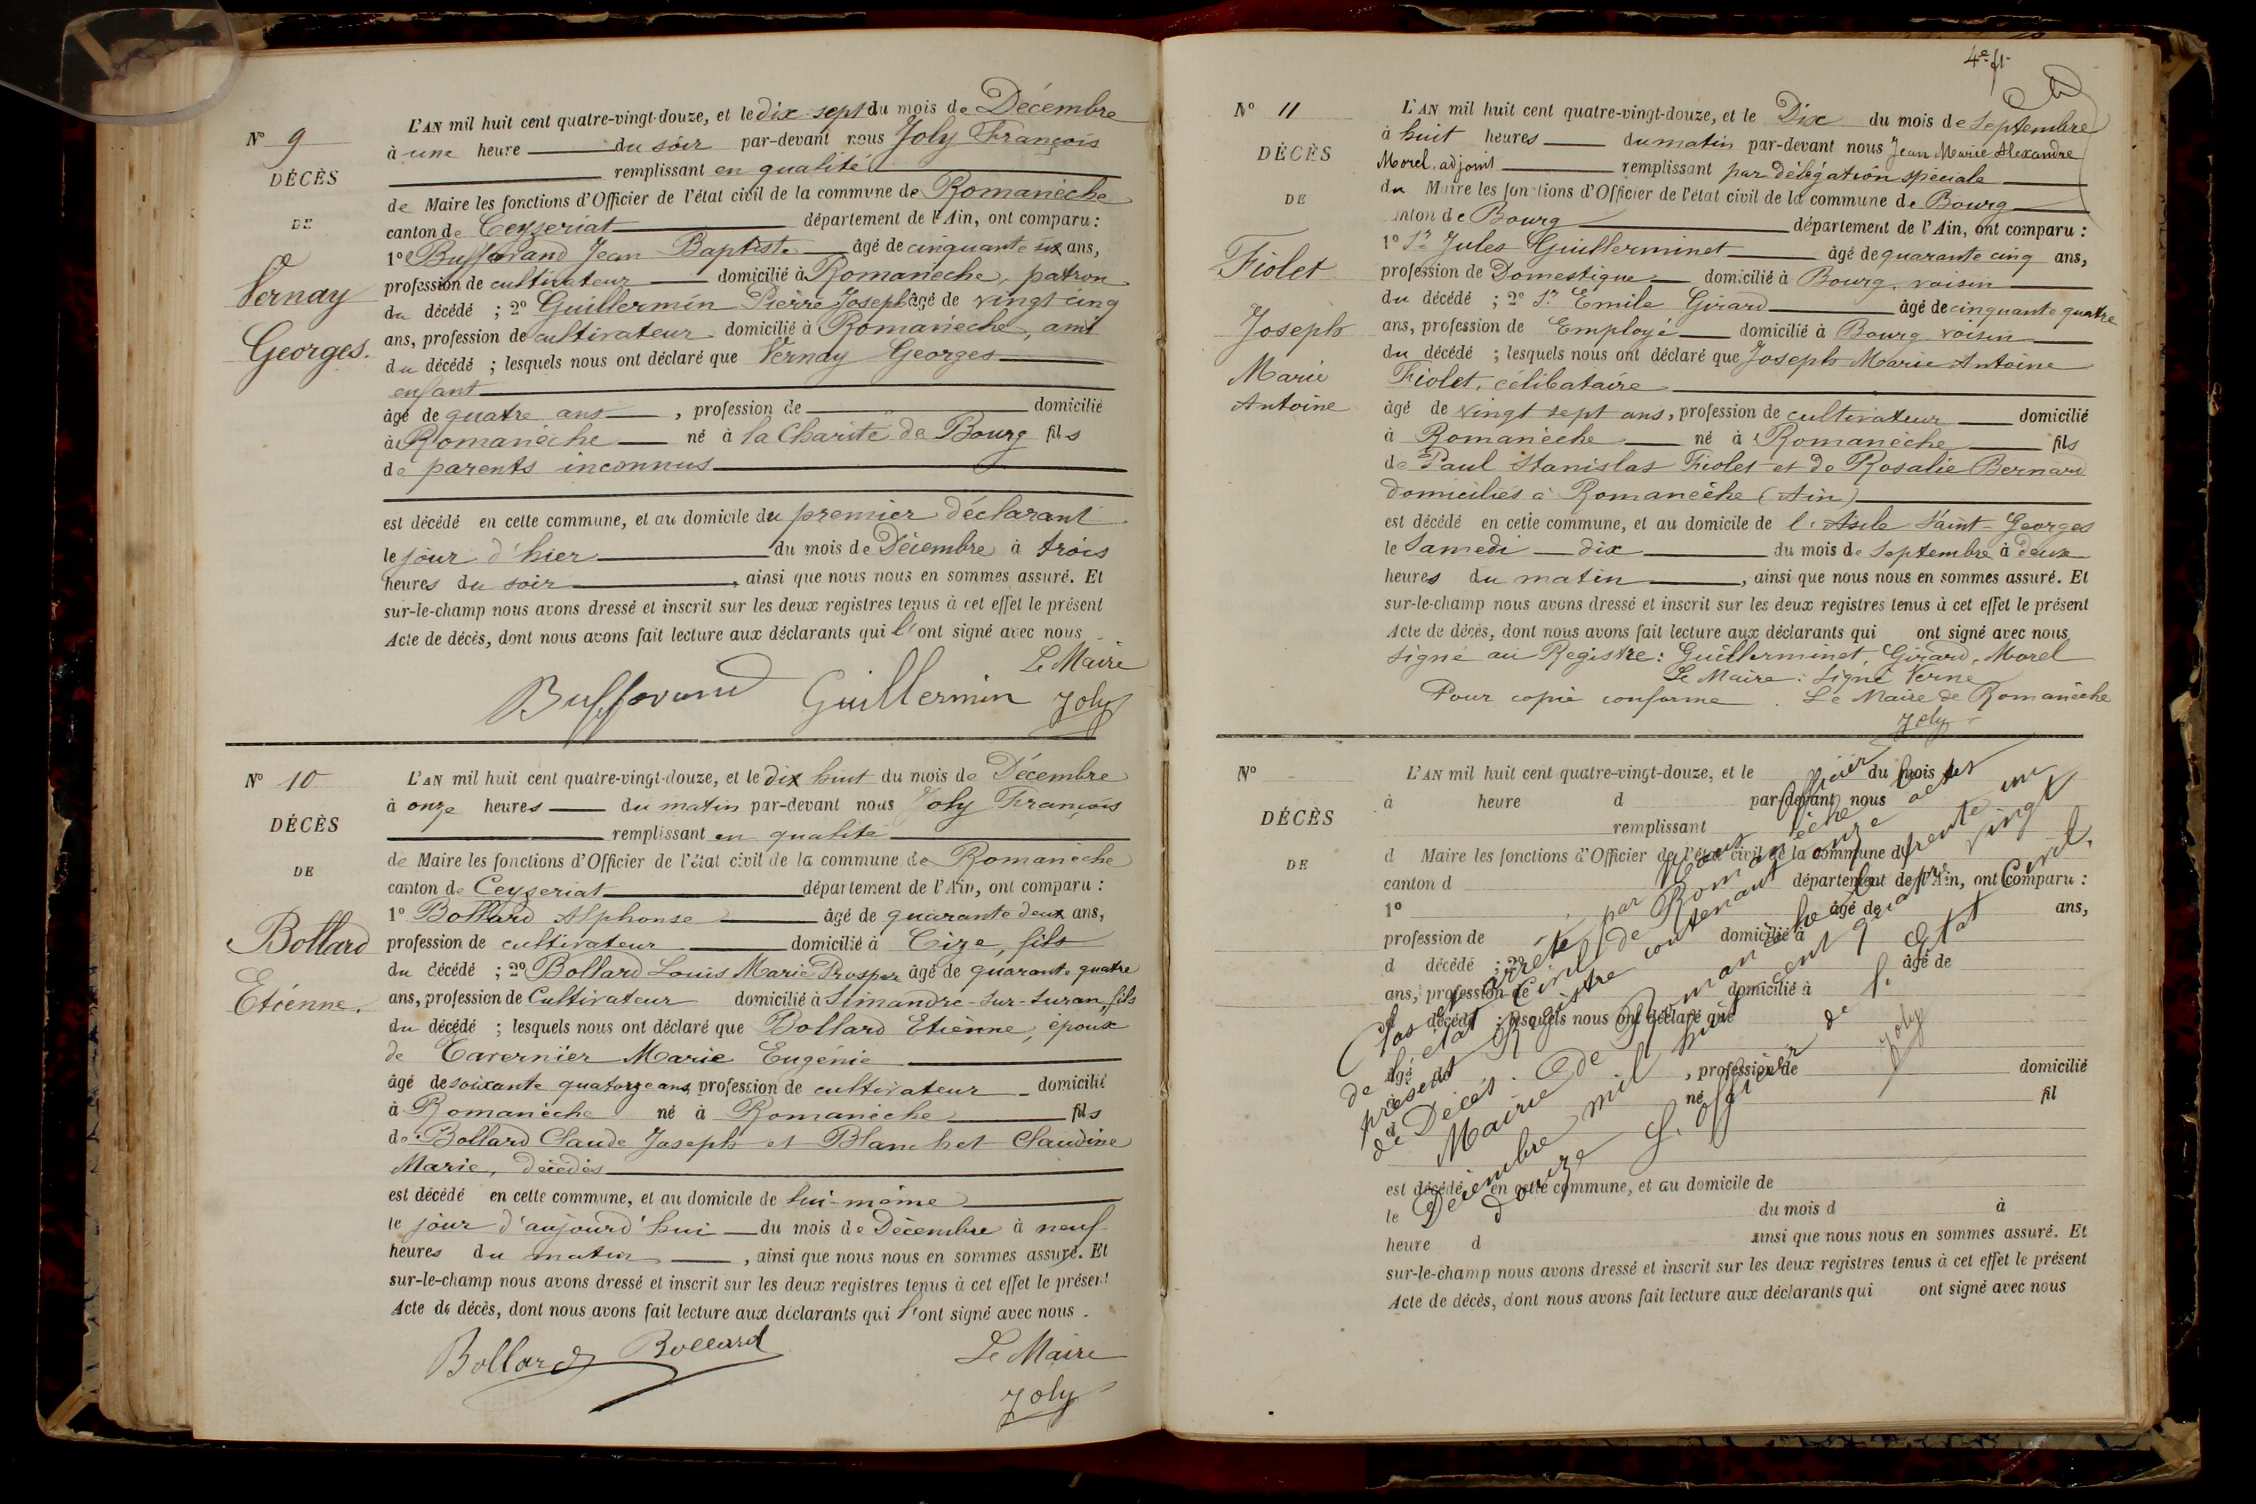 N° 9
DÉCÈS
DE
Vernay
Georges.
L'AN mil huit cent quatre-vingt-douze, et le dix-sept du mois de Décembre
à une heure du soir par-devant nous Joly François
remplissant en qualité
de Maire les fonctions d'Officier de l'état civil de la commune de Romanèche
canton de Ceyzeriat département de l'Ain, ont comparu :
1° Buffavand Jean Baptiste âgé de cinquante six ans,
profession de cultivateur domicilié à Romanèche, patron
du décédé ; 2° Guillermin Pierre Joseph âgé de vingt cinq
ans, profession de cultivateur domicilié à Romanèche, ami
du décédé ; lesquels nous ont déclaré que Vernay Georges
enfant
âgé de quatre ans , profession de domicilié
à Romanèche né à la Charité de Bourg fils
de parents inconnus
est décédé en cette commune, et au domicile du premier déclarant
le jour d'hier du mois de Décembre à trois
heures du soir , ainsi que nous nous en sommes assuré. Et
sur-le-champ nous avons dressé et inscrit sur les deux registres tenus à cet effet le présent
Acte de décès, dont nous avons fait lecture aux déclarants qui l'ont signé avec nous
Le Maire
Buffavand Guillermin Joly
N° 10
DÉCÈS
DE
Bollard
Etienne.
L'AN mil huit cent quatre-vingt-douze, et le dix huit du mois de Décembre
à onze heures du matin par-devant nous Joly François
remplissant en qualité
de Maire les fonctions d'Officier de l'état civil de la commune de Romanèche
canton de Ceyzeriat département de l'Ain, ont comparu :
1° Bollard Alphonse âgé de quarante deux ans,
profession de cultivateur domicilié à Cize, fils
du décédé ; 2° Bollard Louis Marie Prosper âgé de quarante quatre
ans, profession de Cultivateur domicilié à Simandre-sur-Suran, fils
du décédé ; lesquels nous ont déclaré que Bollard Etienne, époux
de Tavernier Marie Eugénie
âgé de soixante quatorze ans, profession de cultivateur domicilié
à Romanèche né à Romanèche fils
de Bollard Claude Joseph et Blanchet Claudine
Marie, décédés
est décédé en cette commune, et au domicile de lui-même
le jour d'aujourd'hui du mois de Décembre à neuf
heures du matin , ainsi que nous nous en sommes assuré. Et
sur-le-champ nous avons dressé et inscrit sur les deux registres tenus à cet effet le présent
Acte de décès, dont nous avons fait lecture aux déclarants qui l'ont signé avec nous .
Bollard Bollard Le Maire
Joly
N° 11
DÉCÈS
DE
Fiolet
Joseph
Marie
Antoine
L'AN mil huit cent quatre-vingt-douze, et le Dix du mois de Septembre
à huit heures du matin par-devant nous Jean Marie Alexandre
Morel, adjoint remplissant par délégation spéciale
du Maire les fonctions d'Officier de l'état civil de la commune de Bourg
canton de Bourg département de l'Ain, ont comparu :
1° Sr Jules Guillerminet âgé de quarante cinq ans,
profession de Domestique domicilié à Bourg, voisin
du décédé ; 2° Sr Emile Girard âgé de cinquante quatre
ans, profession de Employé domicilié à Bourg voisin
du décédé ; lesquels nous ont déclaré que Joseph Marie Antoine
Fiolet, célibataire
âgé de vingt sept ans, profession de cultivateur domicilié
à Romanèche né à Romanèche fils
de Paul Stanislas Fiolet et de Rosalie Bernard
domiciliés à Romanèche (Ain)
est décédé en cette commune, et au domicile de l'Asile Saint-Georges
le Samedi dix du mois de Septembre à deux
heures du matin , ainsi que nous nous en sommes assuré. Et
sur-le-champ nous avons dressé et inscrit sur les deux registres tenus à cet effet le présent
Acte de décès, dont nous avons fait lecture aux déclarants qui ont signé avec nous
Signé au Registre : Guillerminet, Girard, Morel
Le Maire : Signé Verne
Pour copie conforme . Le Maire de Romanèche
Joly
N°
DÉCÈS
DE
L'AN mil huit cent quatre-vingt-douze, et le du mois de
à heure d par-devant nous
remplissant
d Maire les fonctions d'Officier de l'état civil de la commune d
canton d département de l'Ain, ont comparu :
1° âgé de ans,
profession de domicilié à
d décédé ; 2° âgé de
ans, profession de domicilié à
d décédé ; lesquels nous ont déclaré que
âgé de , profession de domicilié
à né à fil
d
est décédé en cette commune, et au domicile de
le du mois d à
heure d ainsi que nous nous en sommes assuré. Et
sur-le-champ nous avons dressé et inscrit sur les deux registres tenus à cet effet le présent
Acte de décès, dont nous avons fait lecture aux déclarants qui ont signé avec nous
Clos et arrêté par Nous Officier
de l'état Civil de Romanèche le
présent Registre contenant onze actes
de Décès.
Mairie de Romanèche le trente un
Décembre mil huit cent quatre vingt
douze
L'officier de l'Etat Civil.
Joly